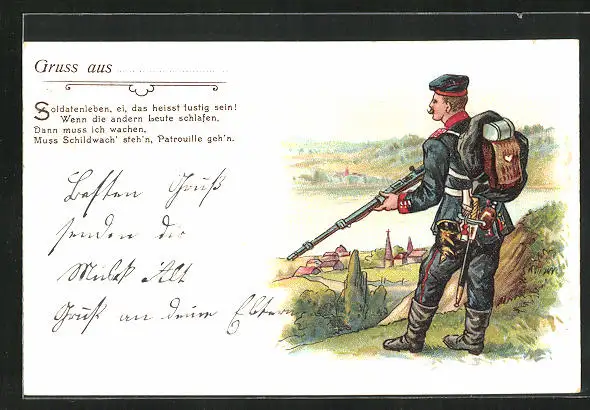 Gruss aus
Soldatenleben, ei, das heisst lustig sein!
Wenn die andern Leute schlafen,
Dann muss ich wachen,
Muss Schildwach' steh'n, Patrouille geh'n.
Besten Gruß
senden dir
Alt
Gruß an deine Eltern